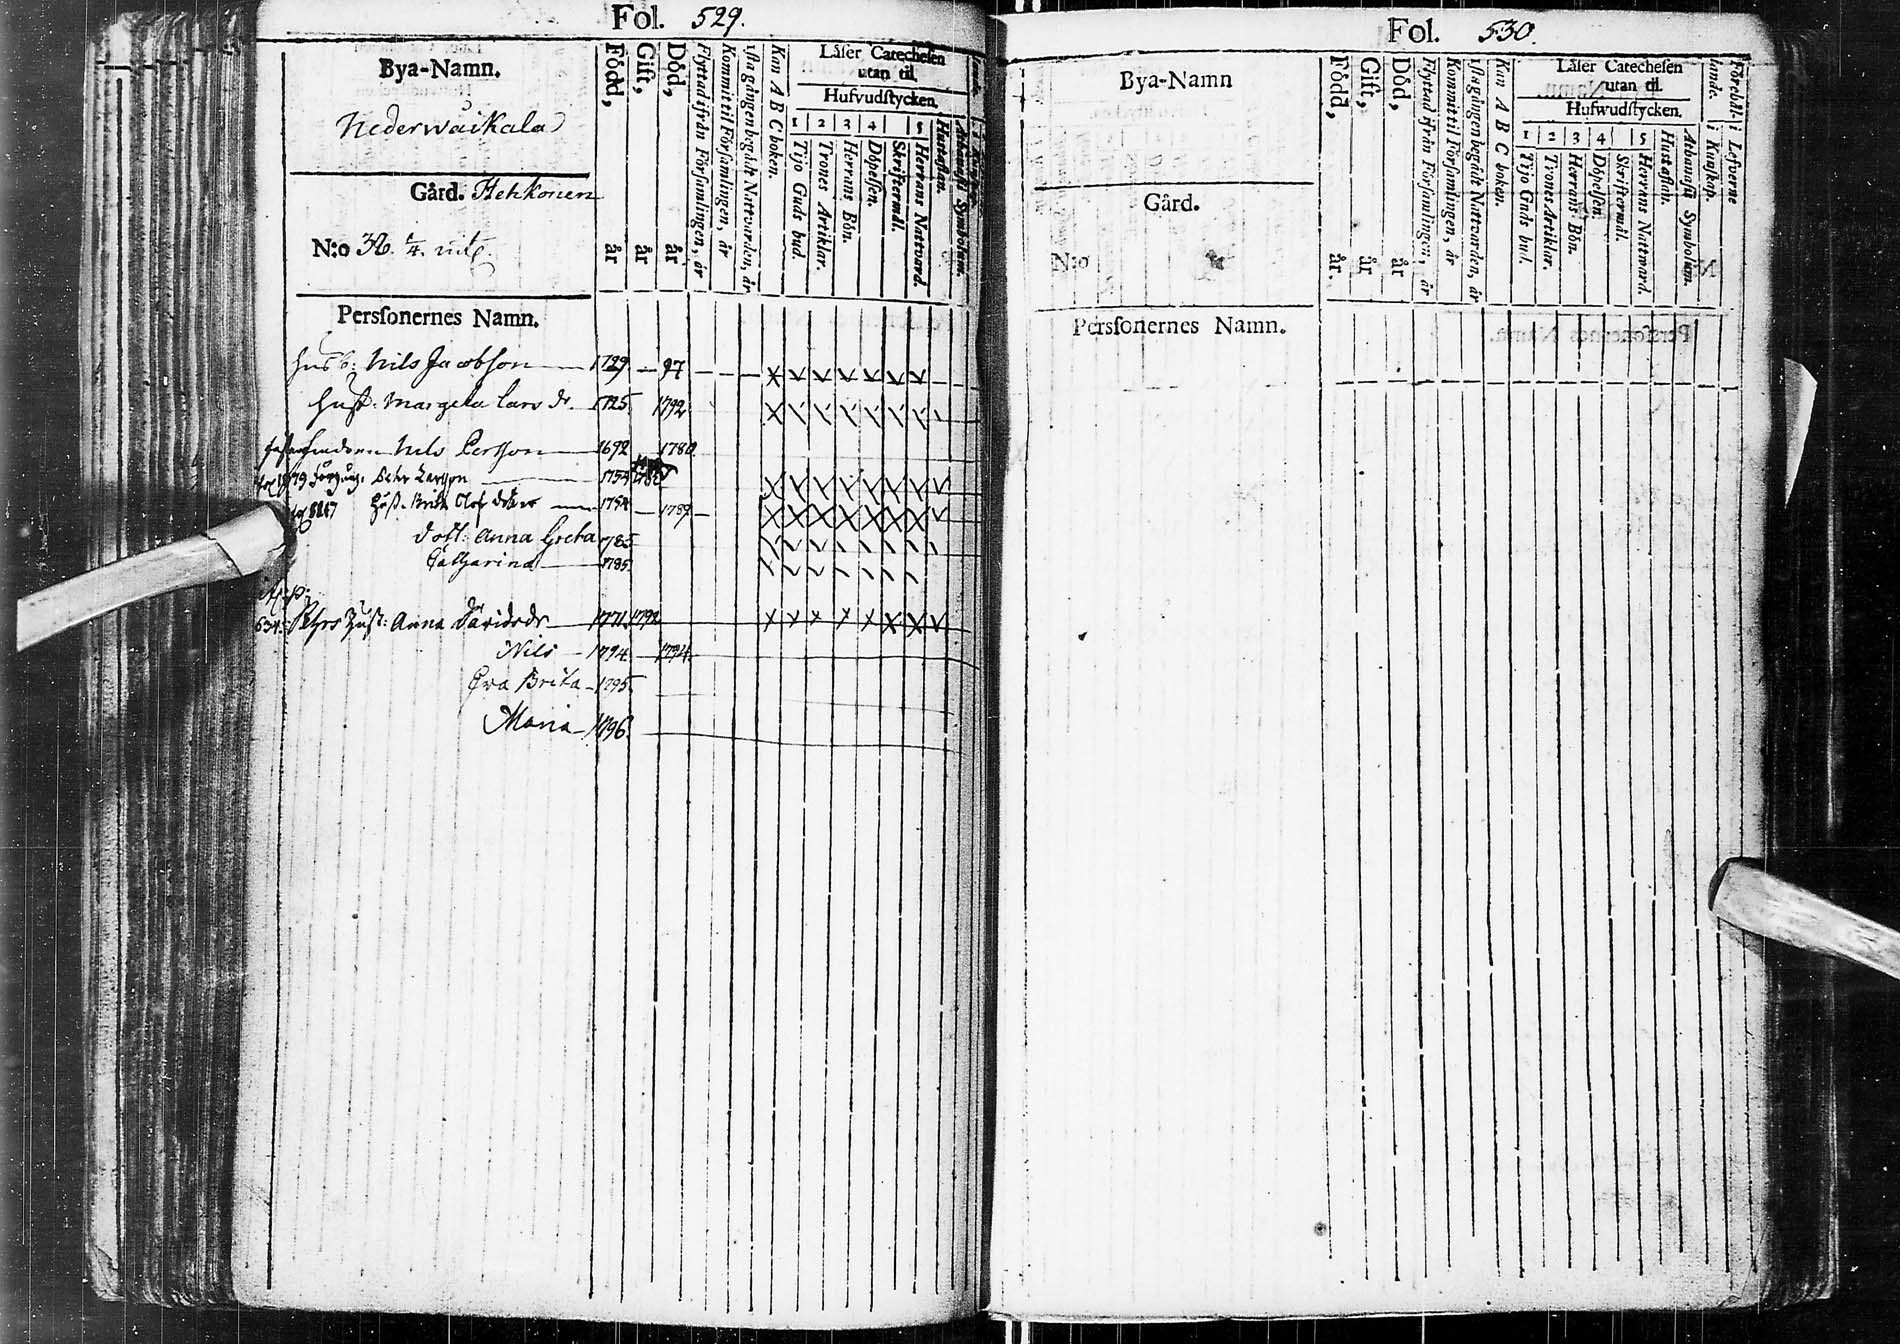 Fol. 529.
Bya-Namn.
Nederwäikala
Gård. Hehkonen
N:o 36. 1/4.
Född, år
Gift, år
Död, år
Flyttad ifrån Församlingen, år
Kommit til Församlingen, år
1sta gången begådt Nattvarden, år
Kan A B C boken.
Låser Catechesen
utan til.
Hufvudstycken.
1 2 3 4 5
Tijo Guds bud.
Trones Artiklar.
Herrans Bön.
Döpelsen.
Skriftermål.
Herrans Nattvard.
Hustaflan.
Athanasii Symbolum.
Persſonernes Namn.
Husb: Nils Jacobson 1729 97
Hust: Margeta Lars dr. 1725 1792
Nils Persson 1692 1780
Pehr Larsson 1754
Hust. Brita Olofs doter 1754 1787
dott: Anna Greta 1783
Catharina 1785
634. Pehrs Hust: Anna Davidsdr 1771 1792
Nils 1794 1794
Ewa Brita 1795
Maria 1796
Fol. 530.
Bya-Namn
Gård.
N:o
Född, år.
Gift, år
Död, år
Flyttad ifrån Församlingen, år
Kommit til Församlingen, år
1sta gången begådt Nattvarden, år
Kan A B C boken.
Låser Catechesen
utan til.
Hufwudstycken.
1 2 3 4 5
Tijo Guds bud.
Trones Artiklar.
Herrans Bön.
Döpelsen.
Skriftermål.
Herrans Nattward.
Hustaflan.
Athanasii Symbolum.
i Kunskap.
i Lefverne
Persſonernes Namn.